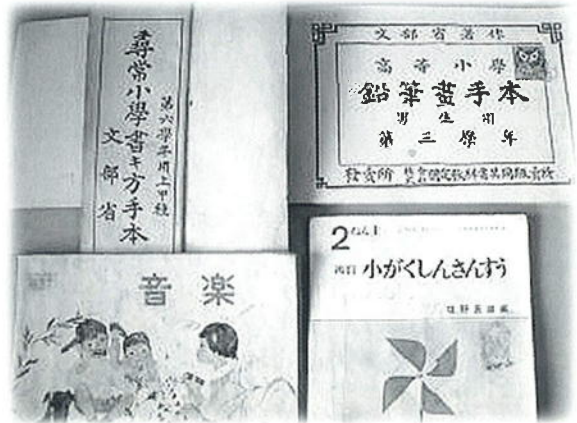 尋常小學書キ方手本
第六學年用上甲種
文部省
文部省著作
高等小學
鉛筆畫手本
男生用
第三學年
發賣所
音楽
2ねん上
小がくしんさんすう